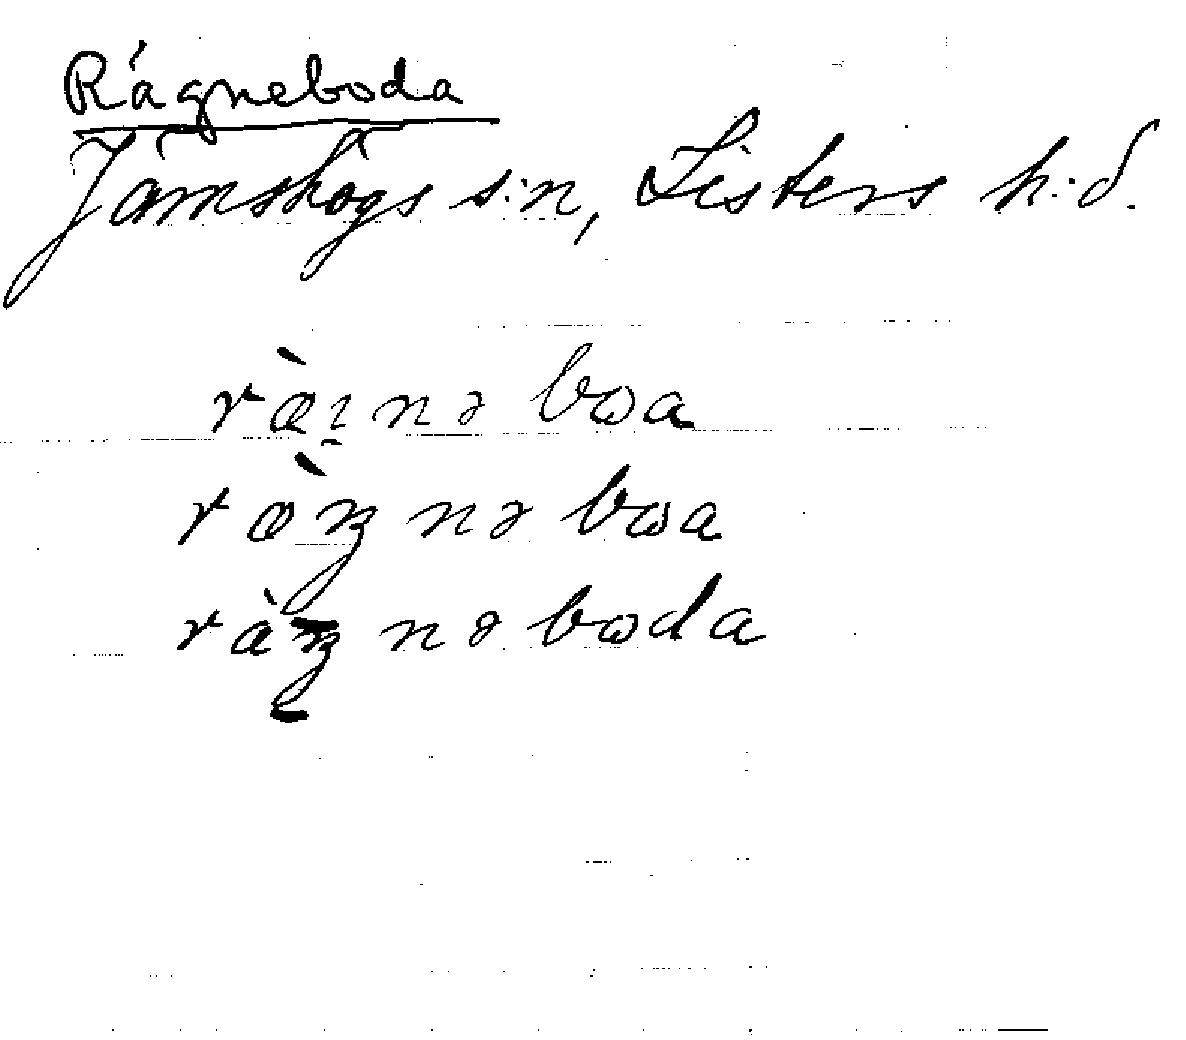 Rágneboda
Jämshögs s:n, Listers h:d.
ræ̀i̯nə bωa
ræ̀ʒnə bωa
ràʒnə bωda